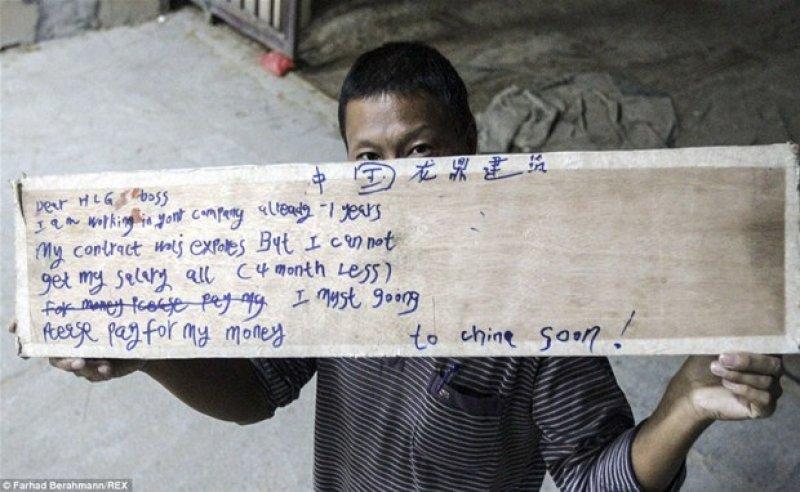 中国龙鼎建筑
Dear HLG boss
I am working in yont company already -1 years
My contract wois expores But I can not
get my salary all (4 month Less)
For money Pceese pay my I myst goong
Pcerse Pay for my money to china soon!
© Farhad Berahmann/REX